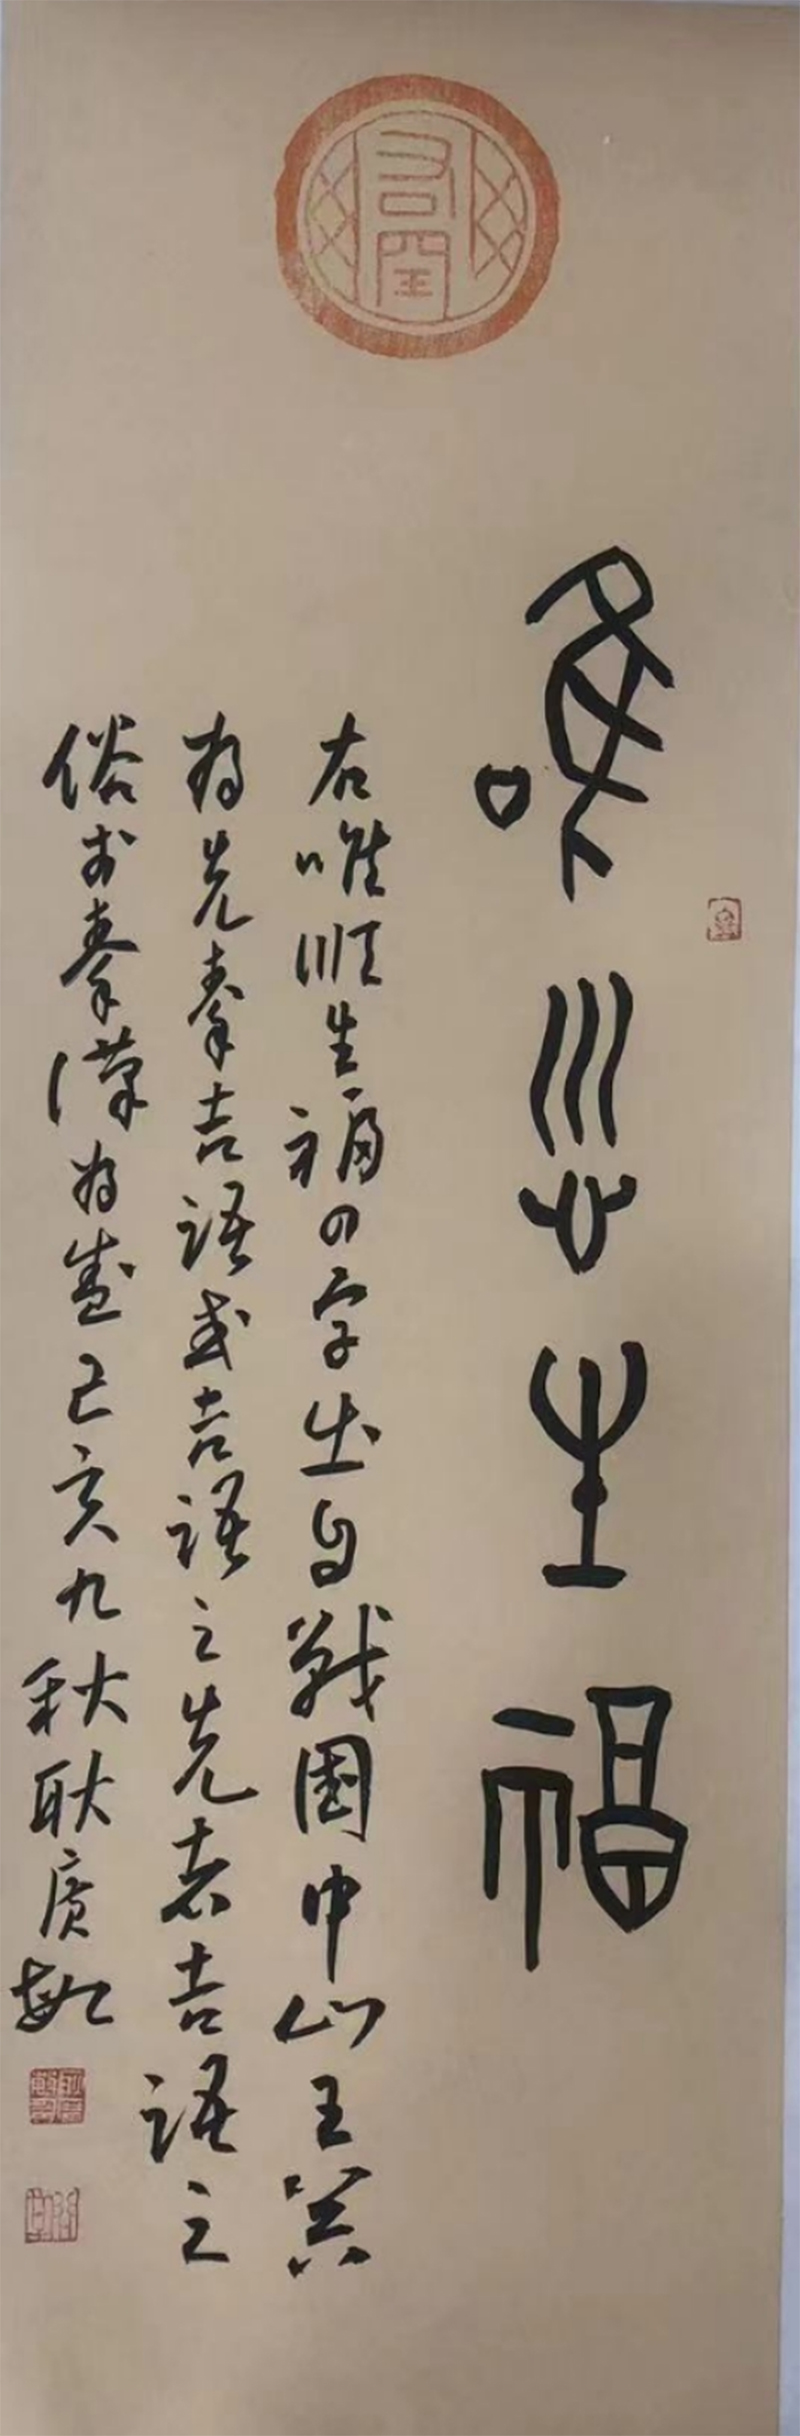 唯順生福
右唯順生福四字出自戰國中山王器
为先秦吉語或吉語之先者吉語之
俗於秦漢为盛己亥九秋耿廣敏